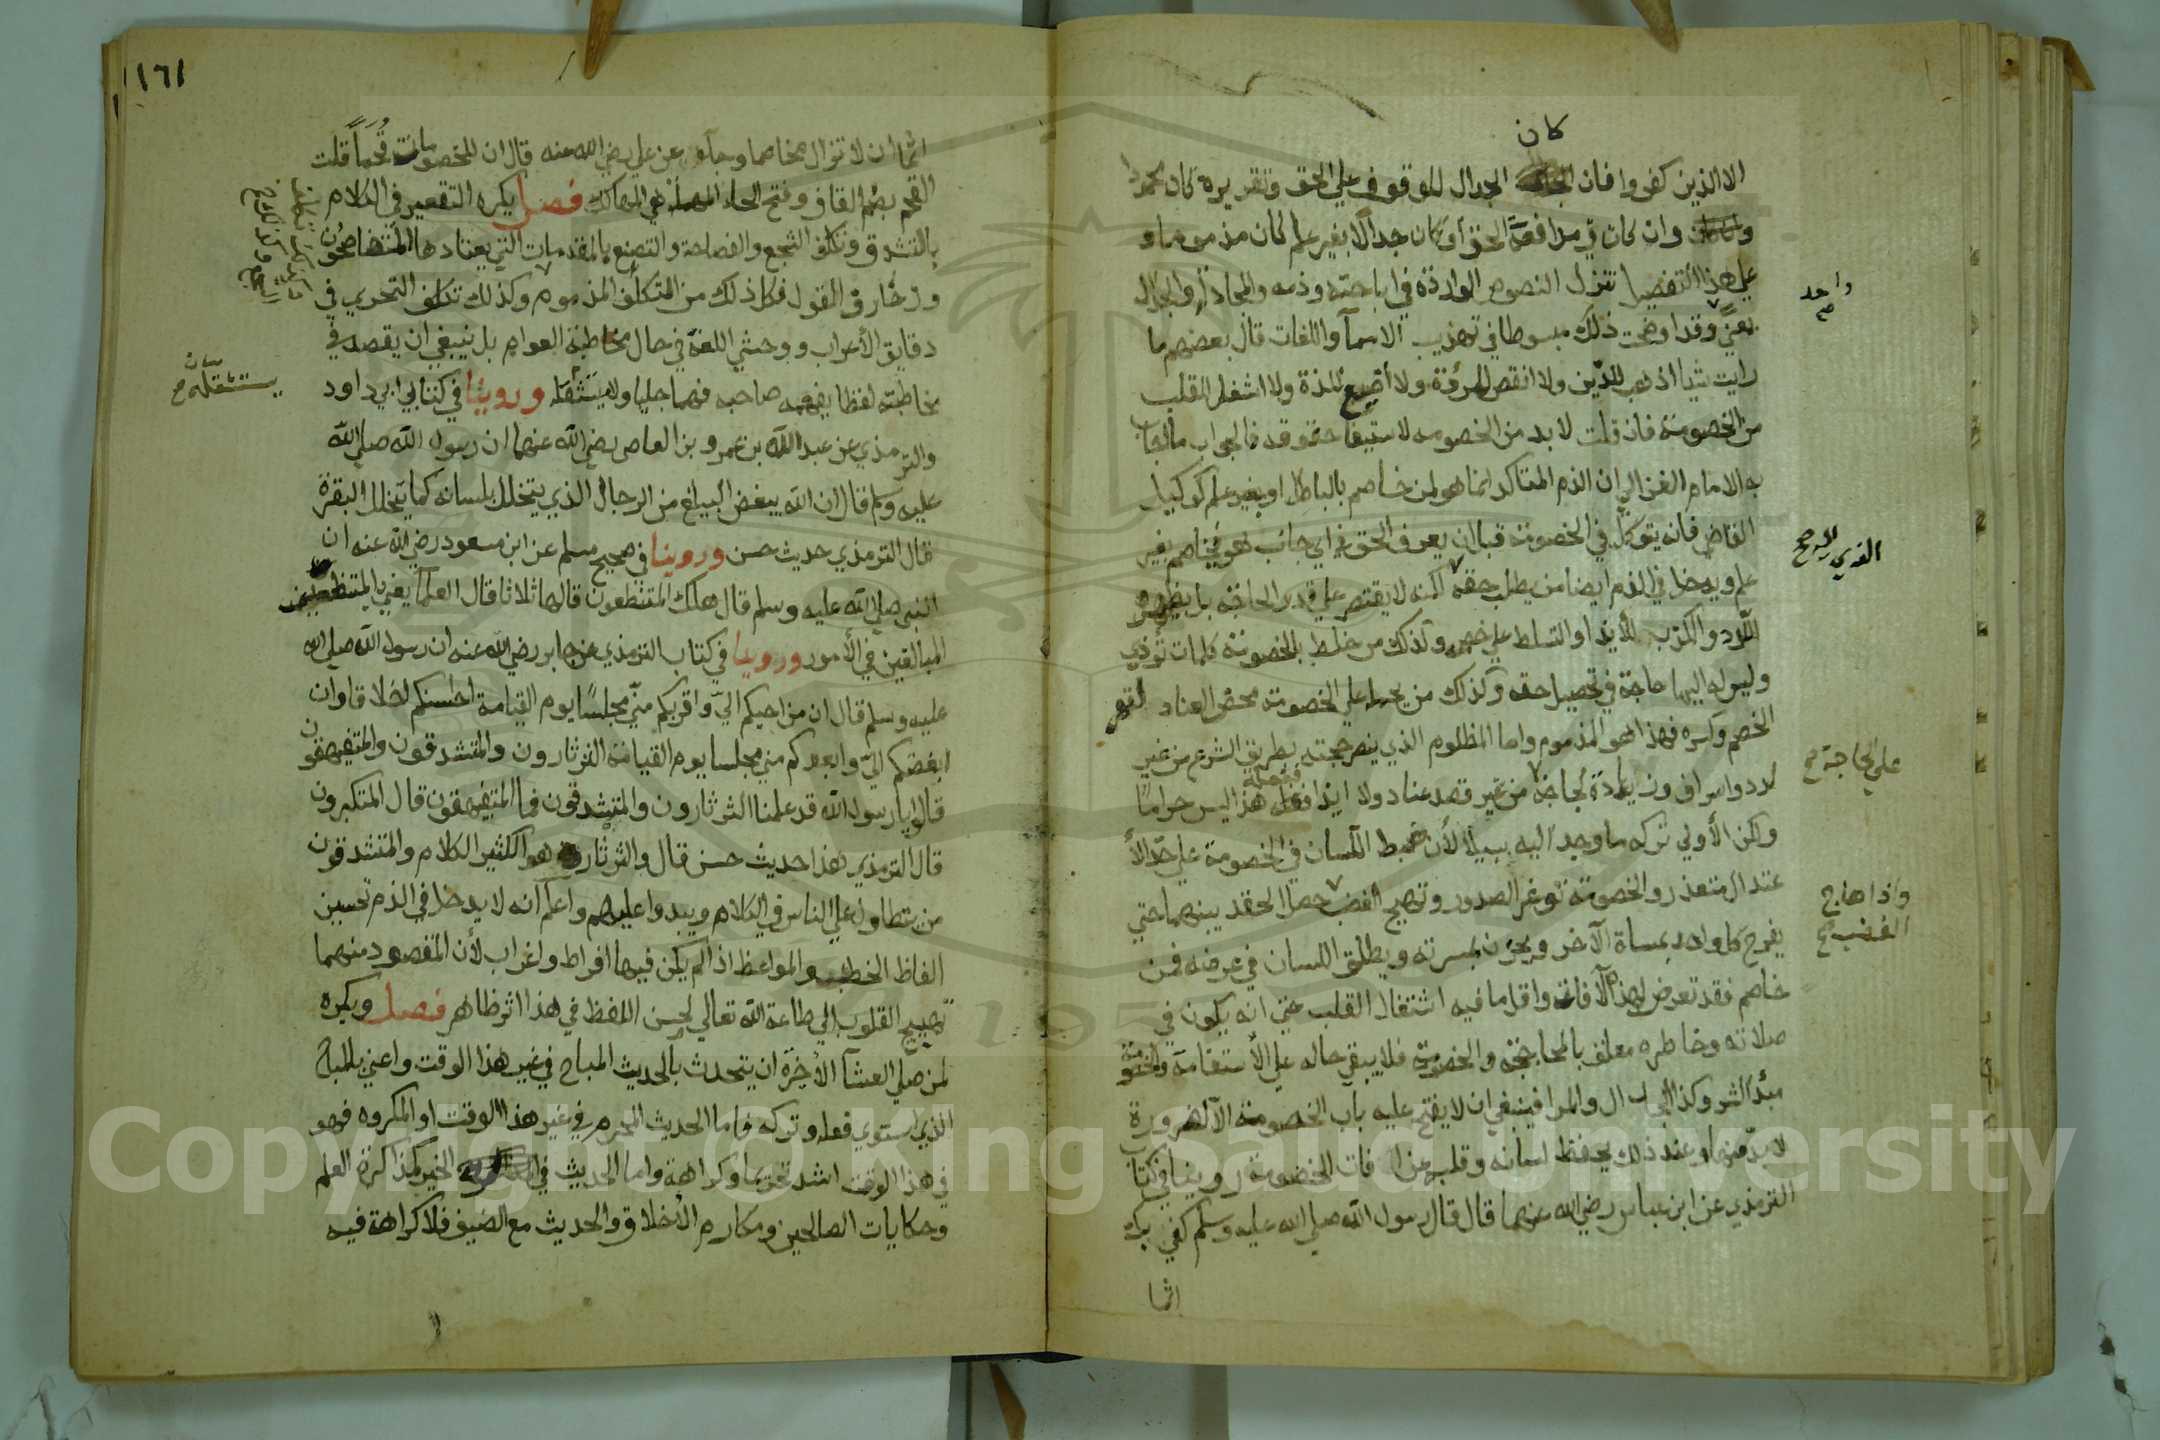 كان
الا الذين كفروا فان الجدال للوقوف على الحق وتقريره كان محمودا
وان كان في مدافعة الحق او كان جدالا بغير علم كان مذموما و
على هذا التفصيل تنزل النصوص الواردة في اباحته وذمه والمجادلة والجدال
بمعنى وقد اوضحت ذلك مبسوطا في تهذيب الاسمآ واللغات قال بعضهم ما
رايت شيا اذهب للدين ولا انقص للمروة ولا اضيع للذة ولا اشغل للقلب
من الخصومة فان قلت لا بد من الخصومه لاستيفا حقوقه فالجواب ما اجاب
به الامام الغزالي ان الذم المتاكد انما هو لمن خاصم بالباطل او بغير علم كوكيل
القاضي فانه يتوكل في الخصومة قبل ان يعرف الحق في اي جانب هو فيخاصم بغير
علم ويدخل في الذم ايضا من يطلب حقه لكنه لا يقتصر على قدر الحاجة بل يظهر
اللدد والكذب للايذا او التسلط على خصمه وكذلك من خلط بالخصومة كلمات تؤذي
وليس له اليها حاجة في تحصيل حقه وكذلك من يحمله على الخصومة محض العناد لقهر
الخصم وكسره فهذا هو المذموم واما المظلوم الذي ينصر حجته بطريق الشرع من غير
لدد واسراف وزيادة لجاجة من غير قصد عناد ولا ايذا ففعله هذا ليس حراما
ولكن الأولى تركه ما وجد اليه سبيلا لأن ضبط اللسان في الخصومة على حد الأ
عتدال متعذر والخصومة توغر الصدور وتهيج الغضب حصل الحقد بينهما حتى
يفرح كل واحد بمساة الآخر ويحزن بمسرته ويطلق اللسان في عرضه فمن
خاصم فقد تعرض لهذه الآفات واقل ما فيه اشتغال القلب حتى انه يكون في
صلاته وخاطره معلق بالمحاججة والخصومة فلا يبقى حاله على الأستقامة والخصومة
مبدأ الشر وكذا الجدال والمرا فينبغي ان لا يفتح عليه باب الخصومة الا لضرورة
لا بد منها وعند ذلك يحفظ لسانه وقلبه عن افات الخصومة روينا في كتاب
الترمذي عن ابن عباس رضي الله عنهما قال قال رسول الله صلى الله عليه وسلم كفى بك
اثما
واحد
صح
على الحاجة صح
واذا هاج
الغضب صح
١٦١
اثما ان لا تزال مخاصما وجآء عن علي رضي الله عنه قال ان للخصومات قُحَماً قلت
القحم بضم القاف وفتح الحاء المهملة هي المهالك فصل يكره التقعير في الكلام
بالتشدق وتكلف السجع والفصاحة والتصنع بالمقدمات التي يعتادها المتفاصحون
وزخارف القول فكل ذلك من التكلف المذموم وكذلك تكلف التحري في
دقايق الأعراب ووحشي اللغة في حال مخاطبة العوام بل ينبغي ان يقصد في
مخاطبته لفظا يفهمه صاحبه فهما جليا ولا يستثقله وروينا في كتابي ابي داود
والترمذي عن عبد الله بن عمرو بن العاص رضي الله عنهما ان رسول الله صلى الله
عليه وسلم قال ان الله يبغض البليغ من الرجال الذي يتخلل بلسانه كما يتخلل البقرة
قال الترمذي حديث حسن وروينا في صحيح مسلم عن ابن مسعود رضي الله عنه ان
النبي صلى الله عليه وسلم قال هلك المتنطعون قالها ثلاثا قال العلمآ يعني بالمتنطعين
المبالغين في الأمور وروينا في كتاب الترمذي عن جابر رضي الله عنه ان رسول الله صلى الله
عليه وسلم قال ان من احبكم الي واقربكم مني مجلسا يوم القيامة احسنكم اخلاقا وان
ابغضكم الي وابعدكم مني مجلسا يوم القيامة الثرثارون والمتشدقون والمتفيهقون
قالوا يا رسول الله قد علمنا الثرثارون والمتشدقون فما المتفيهقون قال المتكبرون
قال الترمذي هذا حديث حسن قال والثرثار هو الكثير الكلام والمتشدقون
من يتطاول على الناس في الكلام ويبدوا عليهم واعلم انه لا يدخل في الذم تحسين
الفاظ الخطب والمواعظ اذا لم يكن فيها افراط واغراب لأن المقصود منهما
تهييج القلوب الى طاعة الله تعالى لحسن اللفظ في هذا اثر ظاهر فصل ويكره
لمن صلى العشآ الأخرة ان يتحدث بالحديث المباح في غير هذا الوقت واعني بالمباح
الذي استوى فعله وتركه فاما الحديث المحرم في غير هذا الوقت او المكروه فهو
في هذا الوقت اشد تحريما وكراهة واما الحديث في الخير كمذاكرة العلم
وحكايات الصالحين ومكارم الأخلاق والحديث مع الضيف فلا كراهة فيه
يستثقله صح
Copyright © King Saud University